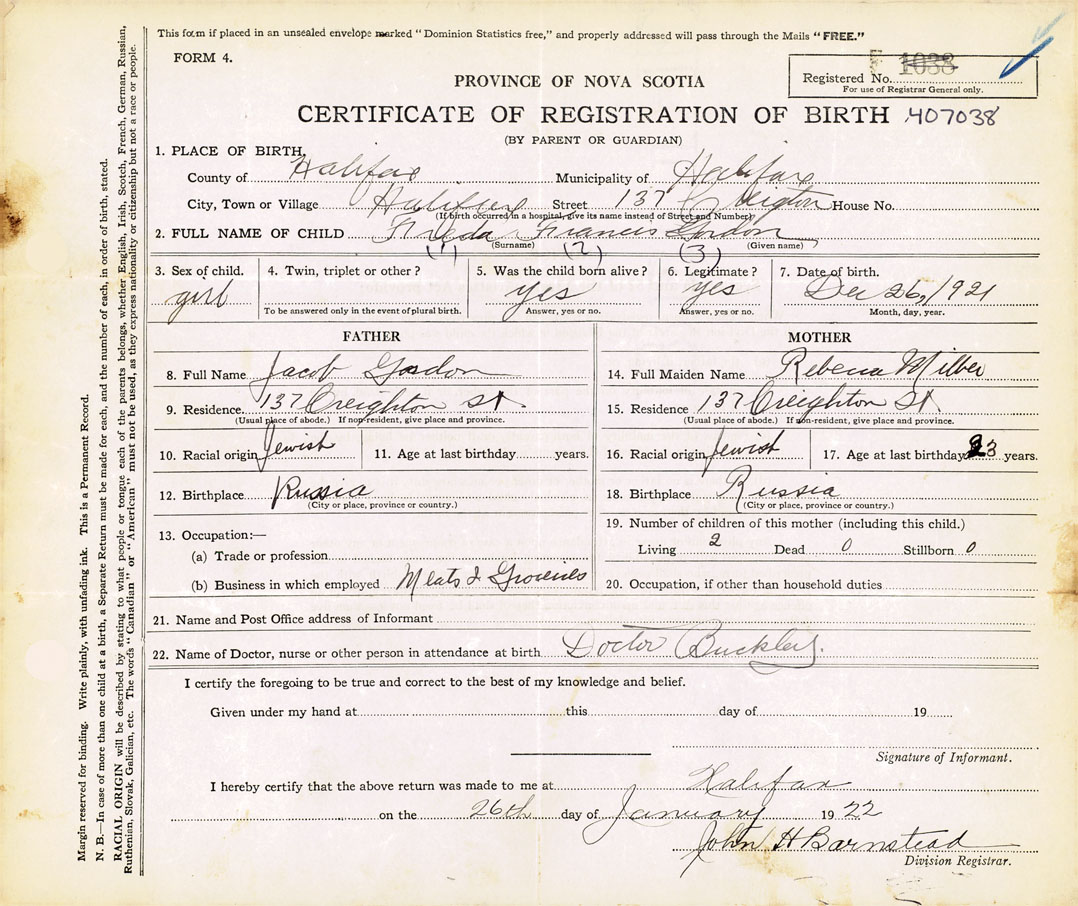 This form if placed in an unsealed envelope marked "Dominion Statistics free," and properly addressed will pass through the Mails "FREE."
FORM 4.
F 1038
Registered No.
For use of Registrar General only.
PROVINCE OF NOVA SCOTIA
CERTIFICATE OF REGISTRATION OF BIRTH 407038
(BY PARENT OR GUARDIAN)
1. PLACE OF BIRTH,
County of Halifax Municipality of Halifax
City, Town or Village Halifax Street 137 Creigton House No.
(If birth occurred in a hospital, give its name instead of Street and Number)
2. FULL NAME OF CHILD Freda Francis Gordon
(1) (Surname) (2) (3) (Given name)
3. Sex of child. 4. Twin, triplet or other? 5. Was the child born alive? 6. Legitimate? 7. Date of birth.
girl yes yes Dec 26, 1921
To be answered only in the event of plural birth. Answer, yes or no. Answer, yes or no. Month, day, year.
FATHER
8. Full Name Jacob Gordon
9. Residence. 137 Creighton St.
(Usual place of abode.) If non-resident, give place and province.
10. Racial origin Jewish 11. Age at last birthday years.
12. Birthplace Russia
(City or place, province or country.)
13. Occupation:—
(a) Trade or profession
(b) Business in which employed Meats & Groceries
MOTHER
14. Full Maiden Name Rebena Milber
15. Residence 137 Creighton St.
(Usual place of abode.) If non-resident, give place and province.
16. Racial origin Jewish 17. Age at last birthday 23 years.
18. Birthplace Russia
(City or place, province or country.)
19. Number of children of this mother (including this child.)
Living 2 Dead 0 Stillborn 0
20. Occupation, if other than household duties
21. Name and Post Office address of Informant
22. Name of Doctor, nurse or other person in attendance at birth Doctor Buckley.
I certify the foregoing to be true and correct to the best of my knowledge and belief.
Given under my hand at this day of 19
Signature of Informant.
I hereby certify that the above return was made to me at Halifax
on the 26th day of January 1922
John H Barnstead
Division Registrar.
Margin reserved for binding. Write plainly, with unfading ink. This is a Permanent Record.
N. B.—In case of more than one child at a birth, a Separate Return must be made for each, and the number of each, in order of birth, stated.
RACIAL ORIGIN will be described by stating to what people or tongue each of the parents belongs, whether English, Irish, Scotch, French, German, Russian,
Ruthenian, Slovak, Galician, etc. The words "Canadian" or "American" must not be used, as they express nationality or citizenship but not a race or people.